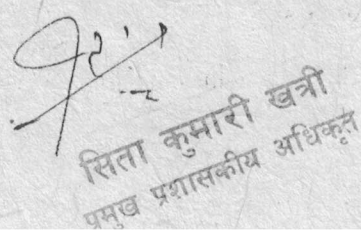 सिता कुमारी खत्री
प्रमुख प्रशासकीय अधिकृत